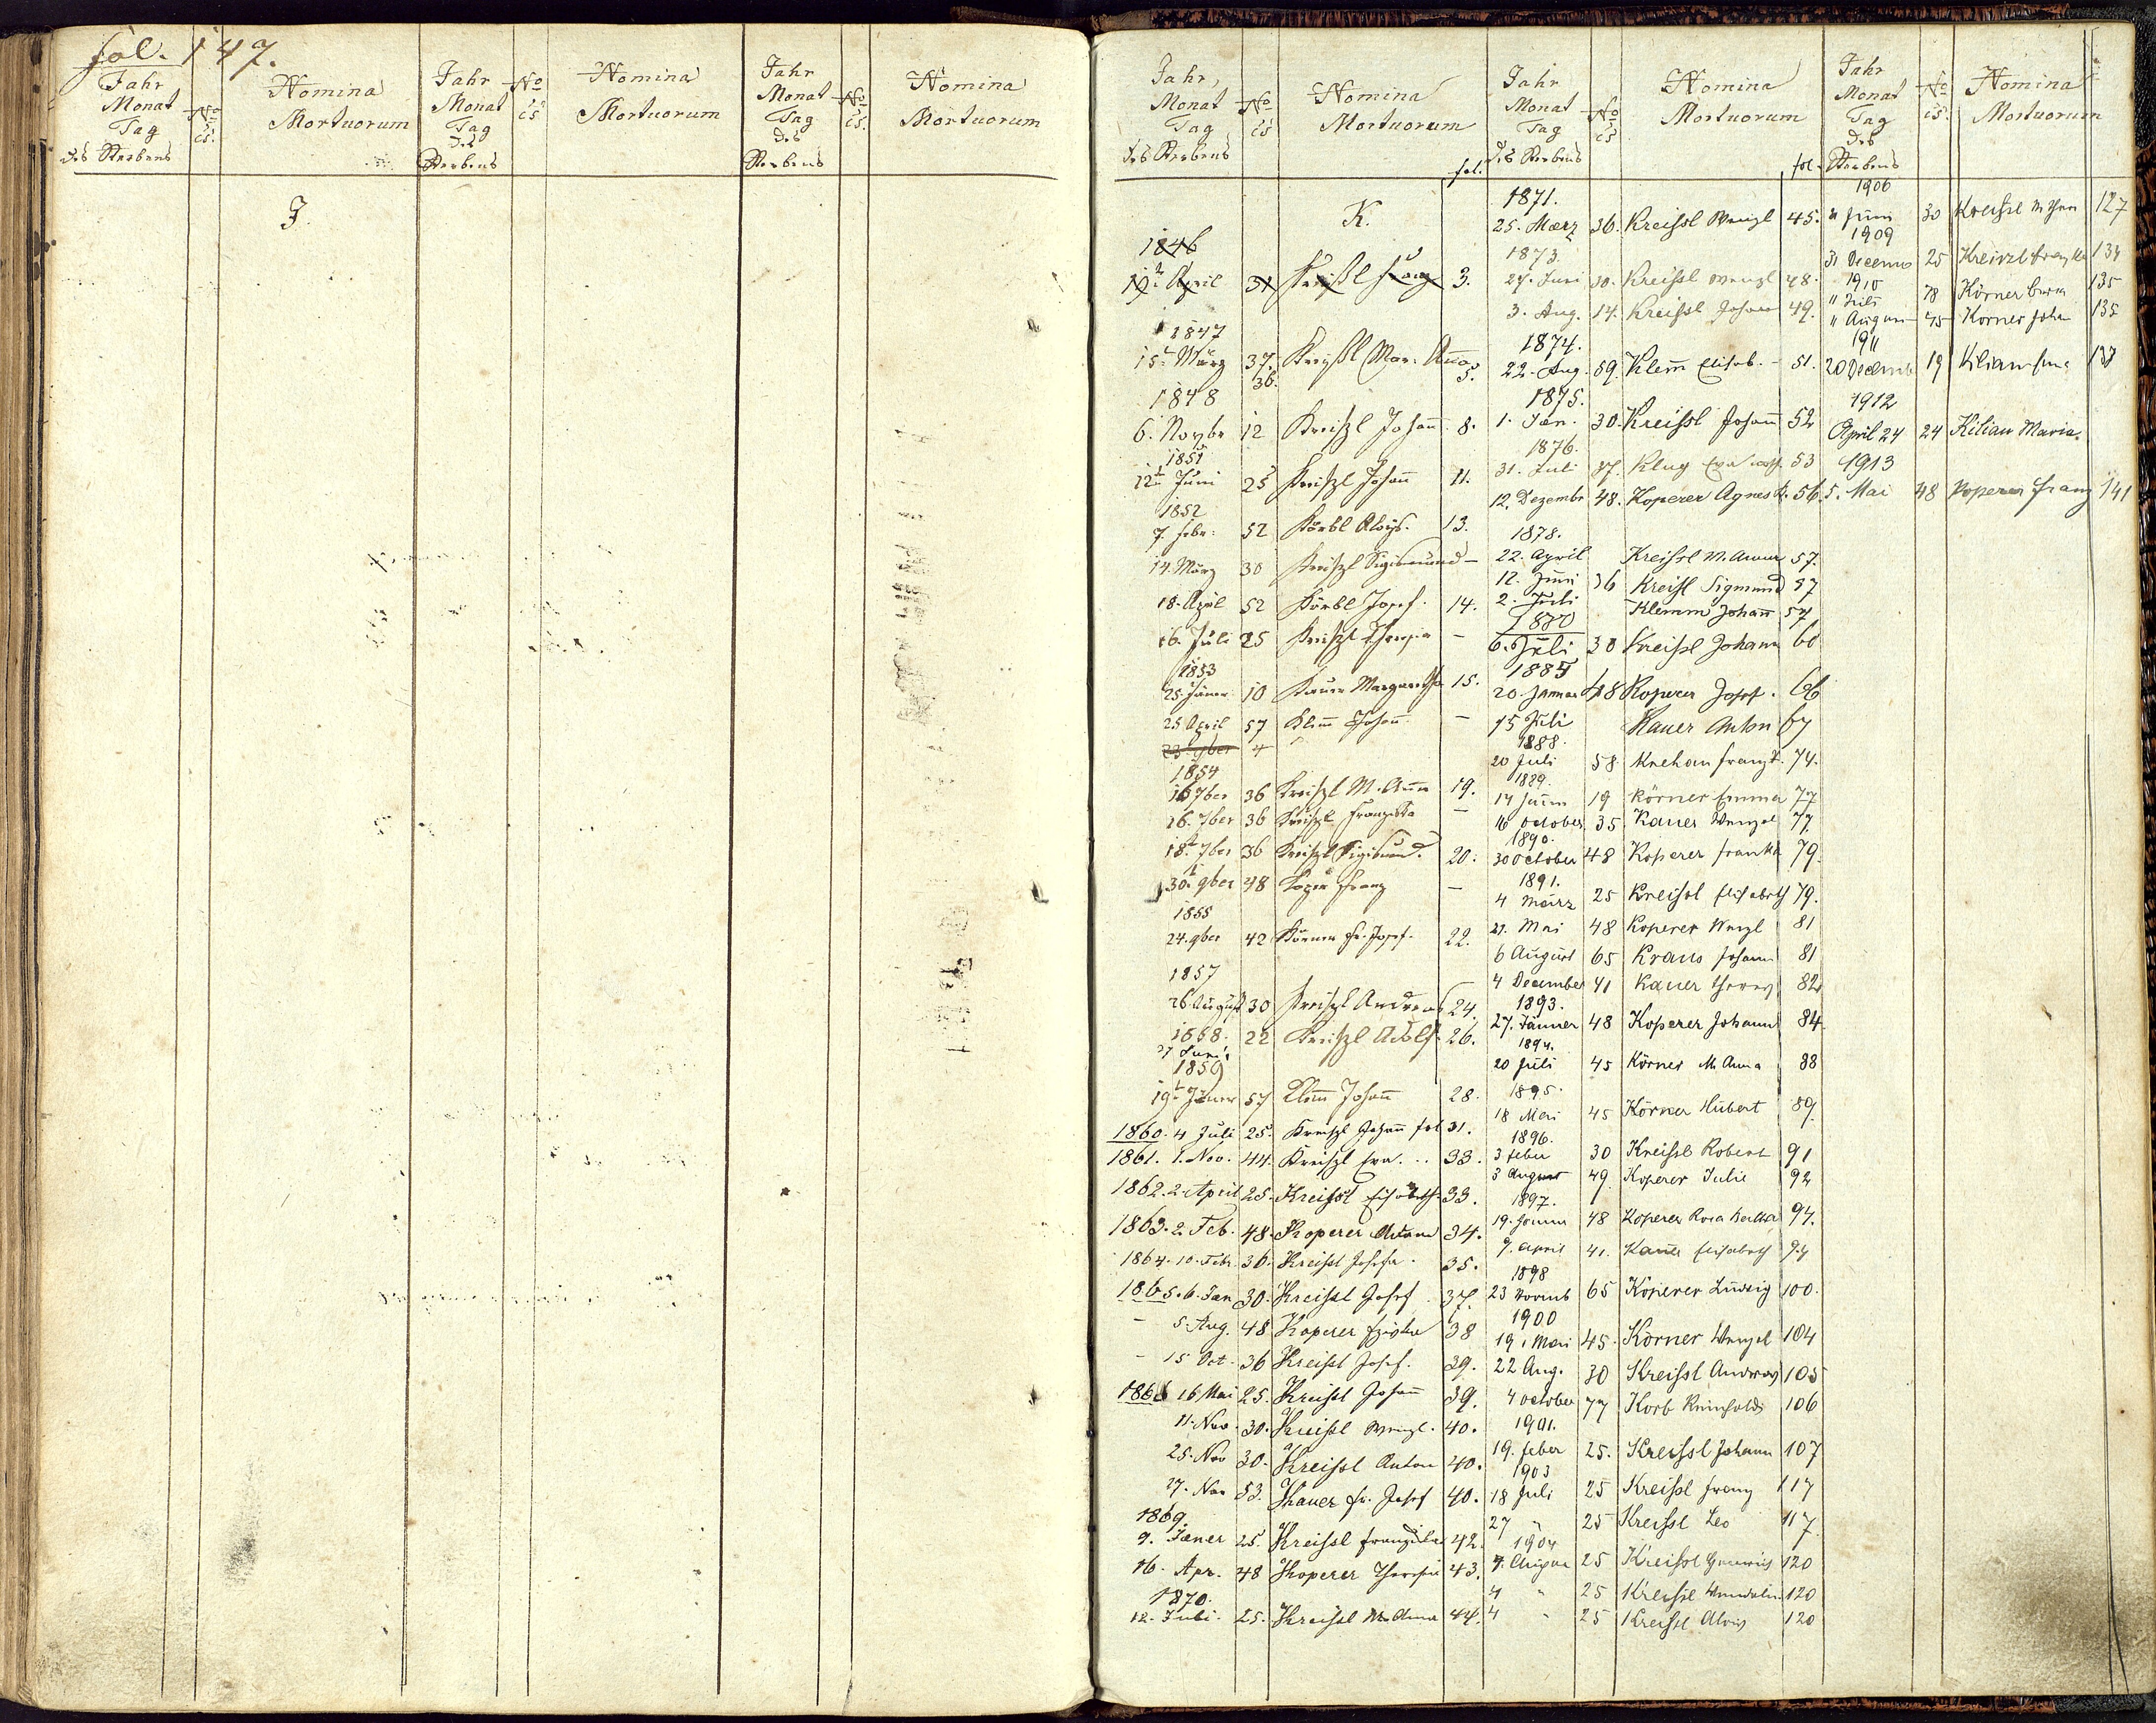 fol. 147.
Jahr Monat Tag des Sterbens
No is.
Nomina Mortuorum
Jahr Monat Tag des Sterbens
No is
Nomina Mortuorum
Jahr Monat Tag des Sterbens
No is.
Nomina Mortuorum
J.
Jahr, Monat Tag des Sterbens
No is
Nomina Mortuorum
fol.
K.
1846
19t April 31 Kreißl Franz 3.
1847
15t März 37. 36. Kreyßl Mar. Anna 5.
1848
6. Novbr 12 Kreißl Johann 8.
1851
12t Juni 25 Kreißl Johann 11.
1852
7. Febr: 52 Körbl Aloys. 13.
14. März 30 Kreißl Sigismund –
18. April 52 Körbl Josef. 14.
16. Juli 25 Kreißl Theresia –
1853
25. Jäner 10 Kauer Margaretha 15.
25 April 57 Klem Johann –
1854
16 7ber 36 Kreißl M. Anna 19.
16. 7ber 36 Kreißl Franziska –
18. 7ber 36 Kreißl Sigismund. 20.
30. 9ber 48 Franz –
1855
24. 9ber 42 Körner Fr. Josef. 22.
1857
26 August 30 Kreißl Andreas 24.
1858. 22 Kreißl Adolf. 26.
27 Juni
1859
19t Jäner 57 Klem Johann 28.
1860. 4 Juli 25. Kreißl Johann fol 31.
1861. 1. Nov. 44. Kreißl Eva. .. 33.
1862. 2. April 25. Kreißl Elisabeth 33.
1863. 2. Feb. 48. Koperer Adam 34.
1864. 10. Febr. 36. Kreißl Josefa. 35.
1865. 6. Jan 30. Kreißl Josef 37.
– 5. Aug. 48 Koperer 38
– 15 Oct. 36 Kreißl Josef. 39.
1866 16 Mai 25. Kreißl Johann 39.
11. Nov. 30. Kreißl Wenzl. 40.
25. Nov 30. Kreißl Anton 40.
27. Nov 53. Kauer Fr. Josef 40.
1869.
9. Jæner 25. Kreißl Franziska 42.
16. Apr. 48 Koperer Theresia 43.
1870.
12. Juli. 25. Kreißl M. Anna 44.
Jahr Monat Tag des Sterbens
No is
Nomina Mortuorum
fol.
1871.
25. Mærz 36. Kreissl Wenzl 45.
1873.
27. Juni 30. Kreißl Wenzl 48.
3. Aug. 14. Kreißl Johann 49.
1874.
22. Aug. 59. Klem Elisab. – 51.
1875.
1. Jæn. 30. Kreissl Johann 52
1876.
31. Juli 37. Klug Eva 53
12. Dezembr 48. Koperer Agnes 56.
1878.
22. April Kreissl M. Anna 57.
12. Juni 36 Kreißl Sigmund 57
2. Juli Klemm Johann 57
1880
6. Juli 30 Kreißl Johann 60
1885
20. Januar 48 Koperer Josef. 66
15 Juli Kauer Anton 67
1888.
20 Juli 58 Krehan Franz 74.
1889.
14 Juni 19 Körner Emma 77
16 October 35 Kauer Wenzel 77
1890.
30 October 48 Koperer Franka 79.
1891.
4 März 25 Kreissl Elisabeth 79.
21. Mai 48 Koperer Wenzl 81
6 August 65 Kraus Johann 81
4 December 41 Kauer Theres 82
1893.
27. Jänner 48 Koperer Johann 84
1894.
20 Juli 45 Körner M. Anna 88
1895.
18 Mai 45 Körner Hubert 89
1896.
3 Feber 30 Kreissl Robert 91
3 August 49 Koperer Julie 92
1897.
19. Jänner 48 Koperer Rosa Bertha 94.
9. April 41. Kauer Elisabeth 94
1898
23 Novmb 65 Koperer Ludwig 100.
1900
19. Mai 45. Körner Wenzel 104
22 Aug. 30 Kreissl Andreas 105
4 October 77 Korb Reinhold 106
1901.
19. Feber 25. Kreissl Johann 107
1903
18 Juli 25 Kreißl Franz 117
27 " 25 Kreißl Leo 117.
1904
4. August 25 Kreissl Heinrich 120
4 " 25 Kreissl Wendelin 120
4 " 25 Kreissl Alois 120
Jahr Monat Tag des Sterbens
No is.
Nomina Mortuorum
1906
Juni 30 Kreissl 127
1909
31 Decemb 25 Kreissl Franziska 134
1910
11 Juli 78 Körner 135
11 August 45 Körner Johan 135
1911
20 Decemb 19 Kilian 137
1912
April 24 24 Kilian Maria.
1913
5. Mai 48 Koperer Franz 141